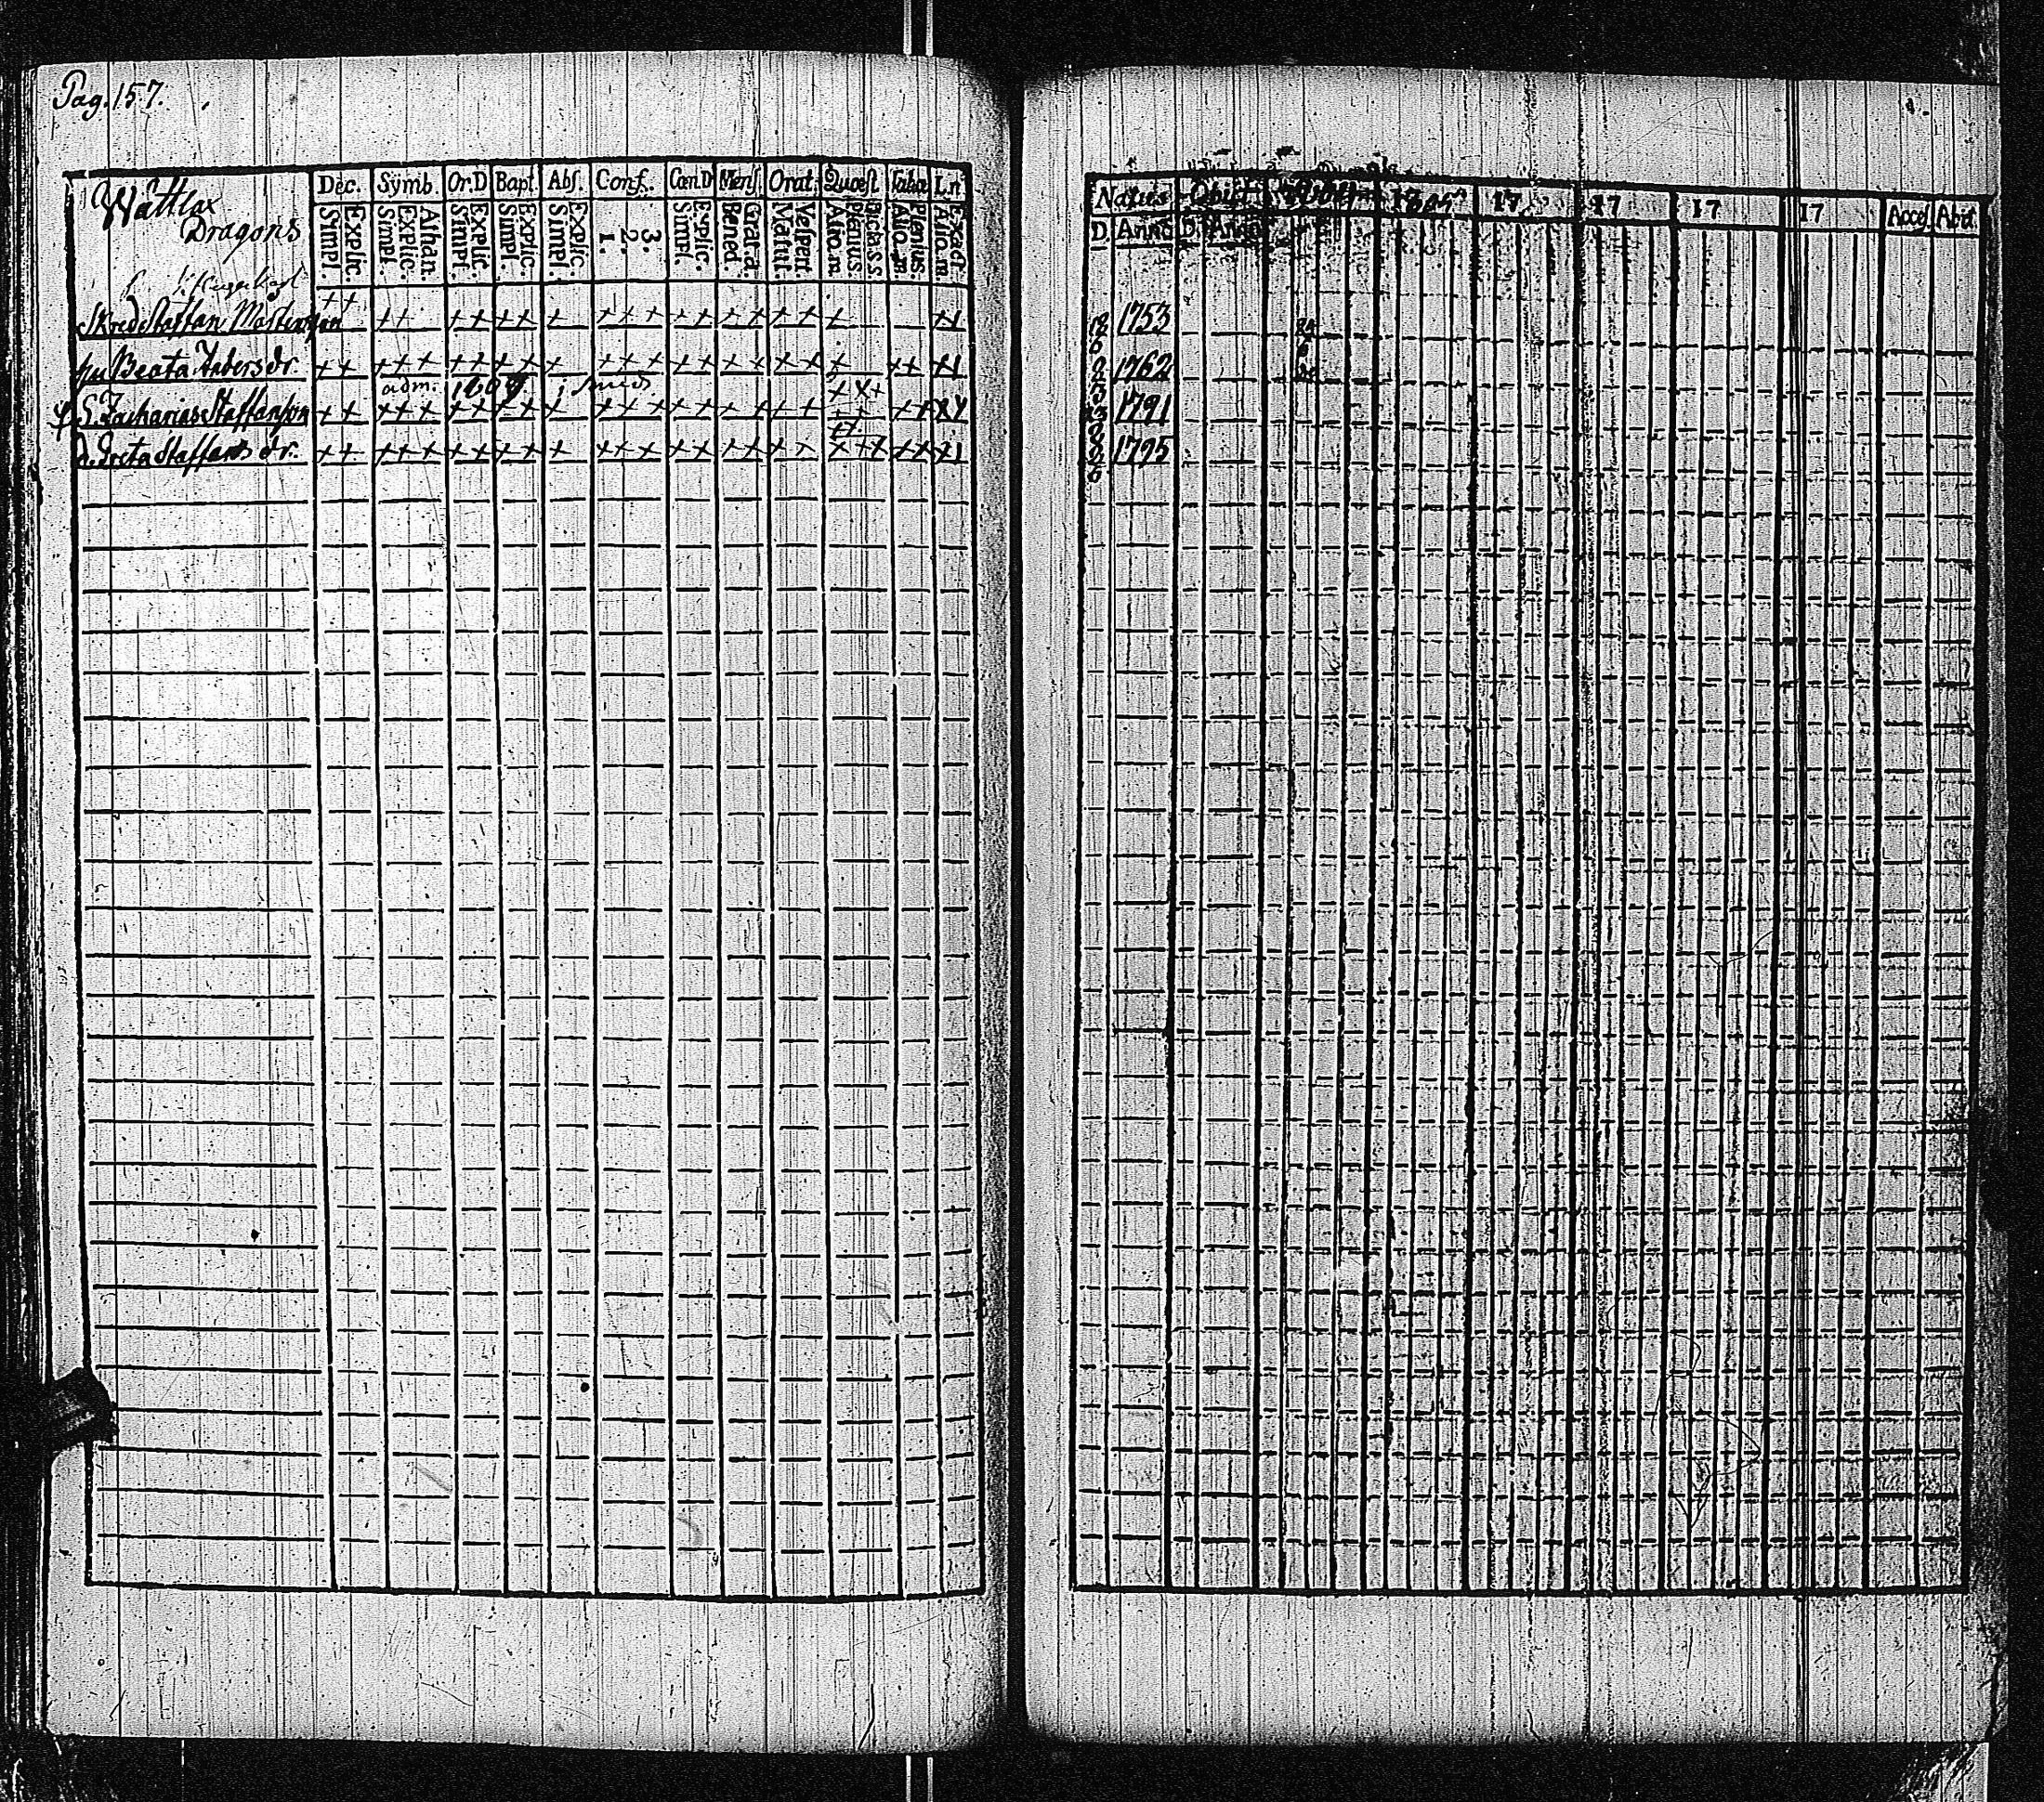 Pag. 157.
Wattlax
Dragons
Dec. Symb. Or.D Bapt. Abs. Conf. Cœn.D Mens. Orat. Quæst. Taba L.n
Simpl. Explic. Simpl. Explic. Athan. Simpl. Explic. Simpl. Explic. Simpl. Explic. 1. 2. 3. Simpl. Explic. Bened. Grat.a. Matut. Vespert. Alio.m Plenius Dictass Alio.m Plenius. Alio.m Exact
Skred. Staffan Mårtensson ++ ++ ++ ++ + +++ ++ ++ ++ +
hu Beata Anders dr. ++ +++ ++ ++ + +++ ++ ++ ++ + ++
adm. 1809
S. Zacharias Staffansson ++ +++ ++ ++ + +++ ++ ++ ++
d. Greta Staffans dr. ++ +++ ++ ++ + +++ ++ ++ ++ +++ ++
Natus Obiit 17 17 17 17 17 Acces. Abit.
D. Anno D. Anno
1753
1762
1791
1795